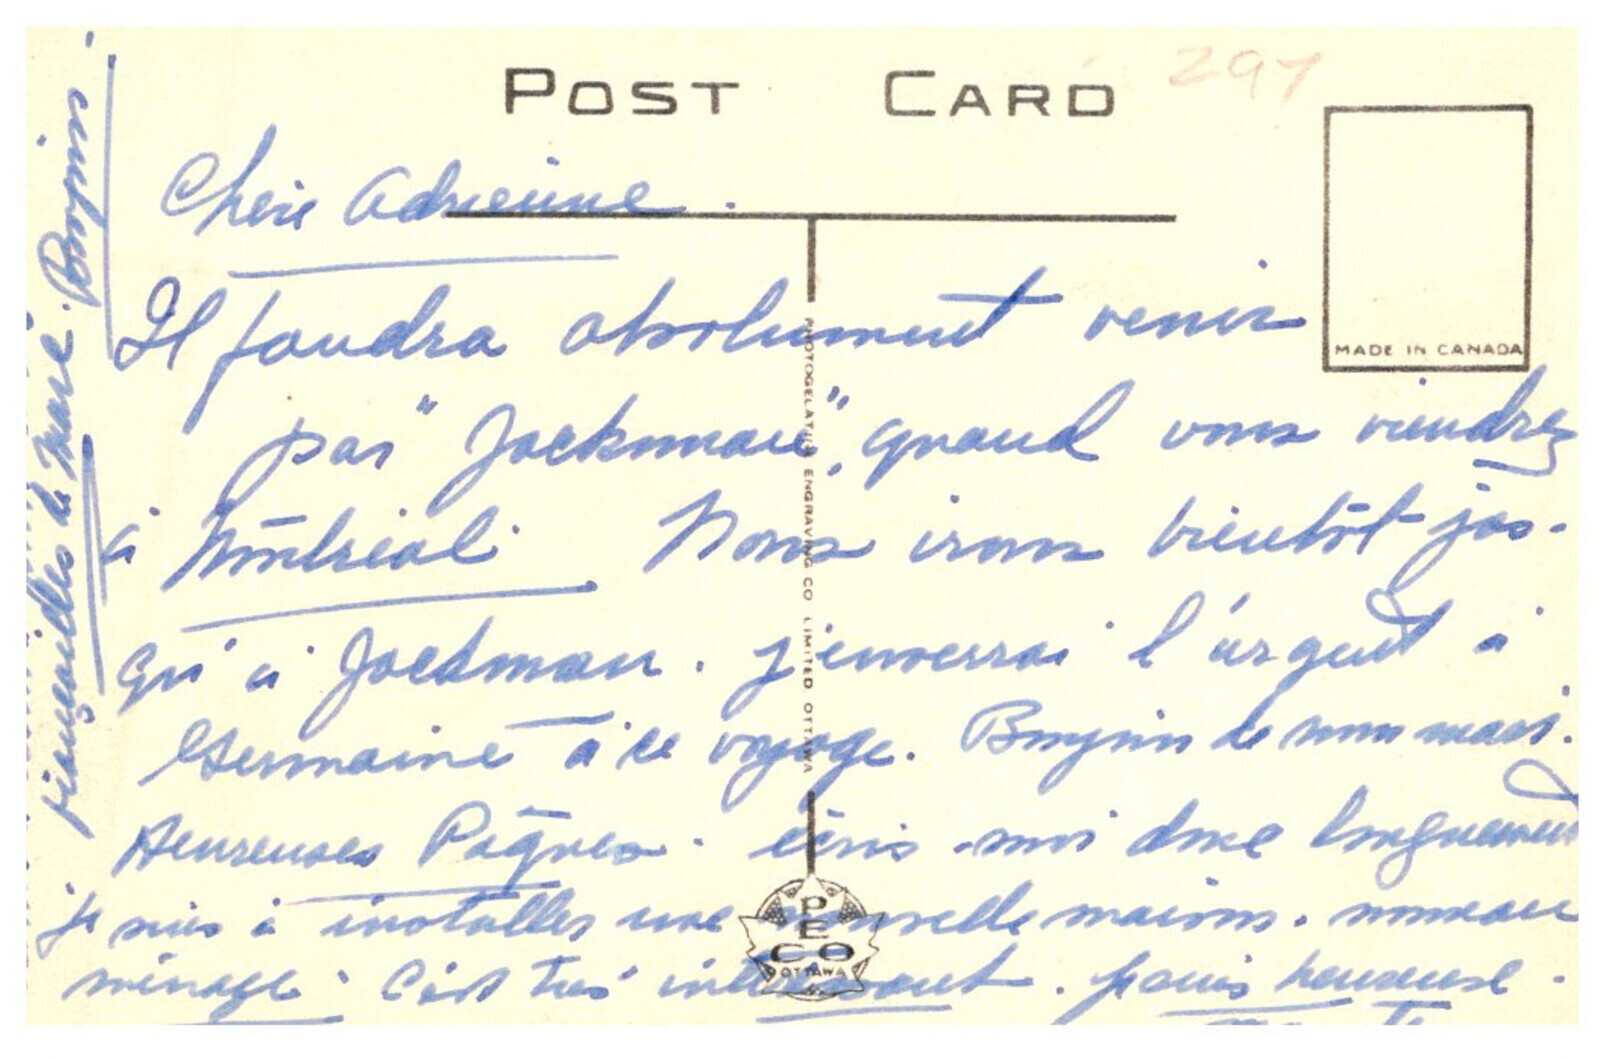 POST CARD
297
MADE IN CANADA
Chère Adrienne.
Il faudra absolument venir
par "Jackman", quand vous viendrez
à Montréal. Nous irons bientôt jus-
qu'à Jackman. J'enverrai l'argent à
Germaine à ce voyage. Bonjour de mon mari.
Heureuses Pâques. écris-moi donc longuement
je suis à installer une nouvelle maison. nouveau
ménage. C'est très intéressant. je suis heureuse.
fiançailles de Bonjour.
PHOTOGELATINE ENGRAVING CO LIMITED OTTAWA
PECO
OTTAWA